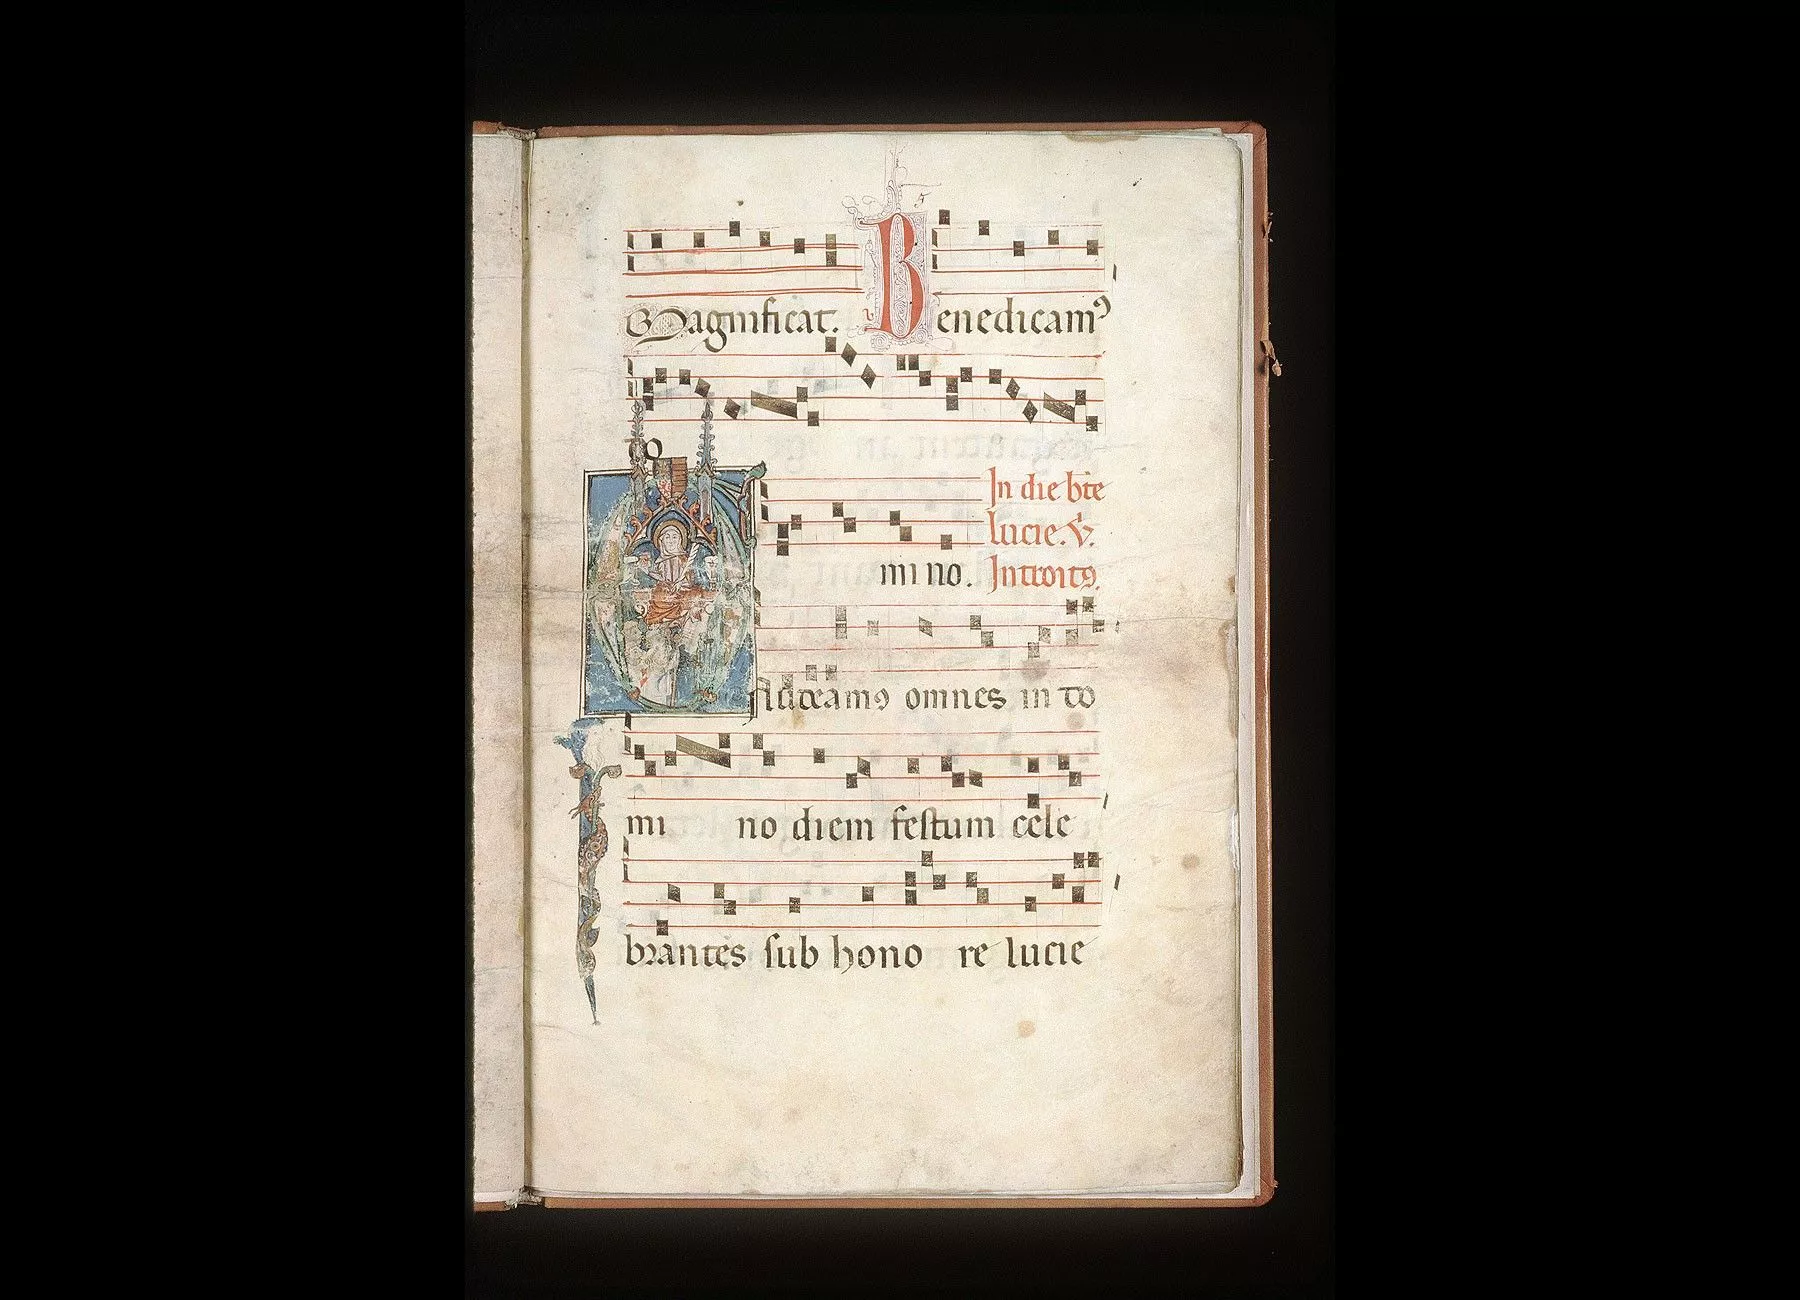 Magnificat. Benedicamꝰ
Do
mino. In die bt̄e
lucie. v̄.
Introitꝰ.
Gaudeamꝰ omnes in do
mi no diem festum cele
brantes sub hono re lucie